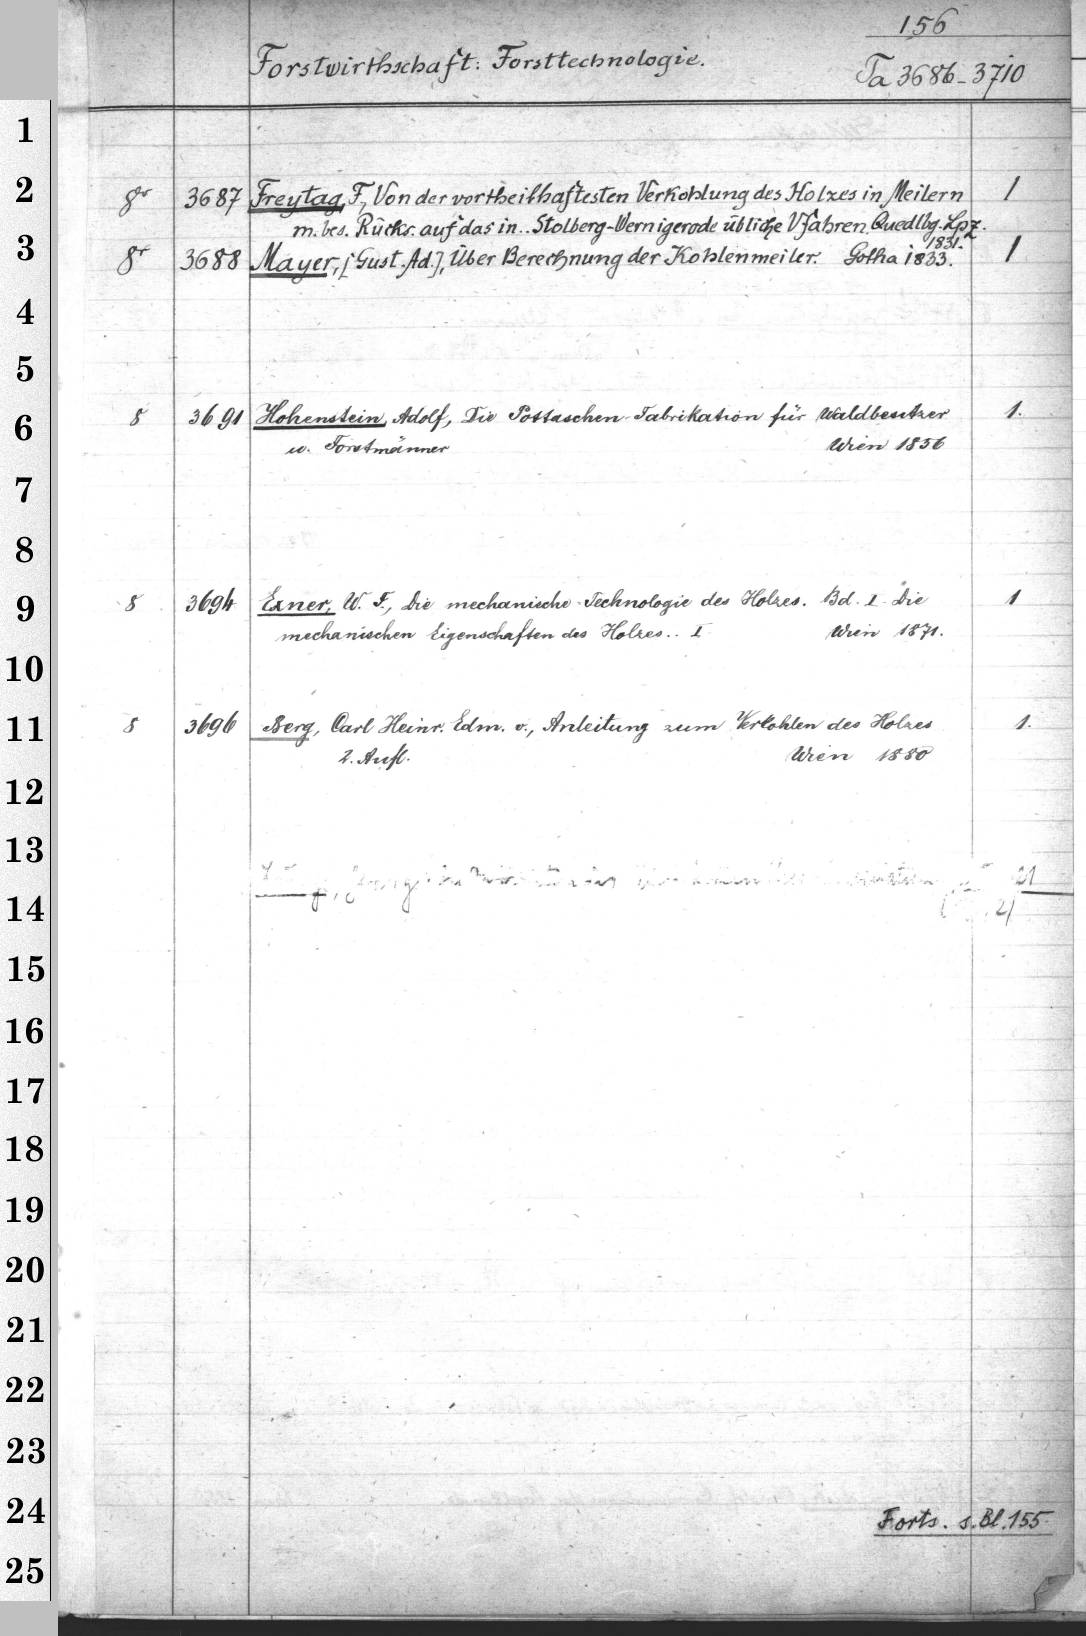 156
Forstwirthschaft: Forsttechnologie.
Ta 3686-3710
1
2
8° 3687 Freytag, F., Von der vortheilhaftesten Verkohlung des Holzes in Meilern 1
m. bes. Rücks. auf das in.. Stolberg-Wernigerode übliche Vfahren. Quedlbg. Lpz.
1831.
3
8° 3688 Mayer, [Gust. Ad.], Über Berechnung der Kohlenmeiler. Gotha 1833. 1
4
5
6
8 3691 Hohenstein, Adolf, Die Pottaschen-Fabrikation für Waldbesitzer 1.
u. Forstmänner Wien 1856
7
8
9
8 3694 Exner, W. F., Die mechanische Technologie des Holzes. Bd. I. Die 1
mechanischen Eigenschaften des Holzes.. I Wien 1871.
10
11
8 3696 Berg, Carl Heinr. Edm. v., Anleitung zum Verkohlen des Holzes 1.
2. Aufl. Wien 1880
12
13
14
15
16
17
18
19
20
21
22
23
24
Forts. s. Bl. 155.
25